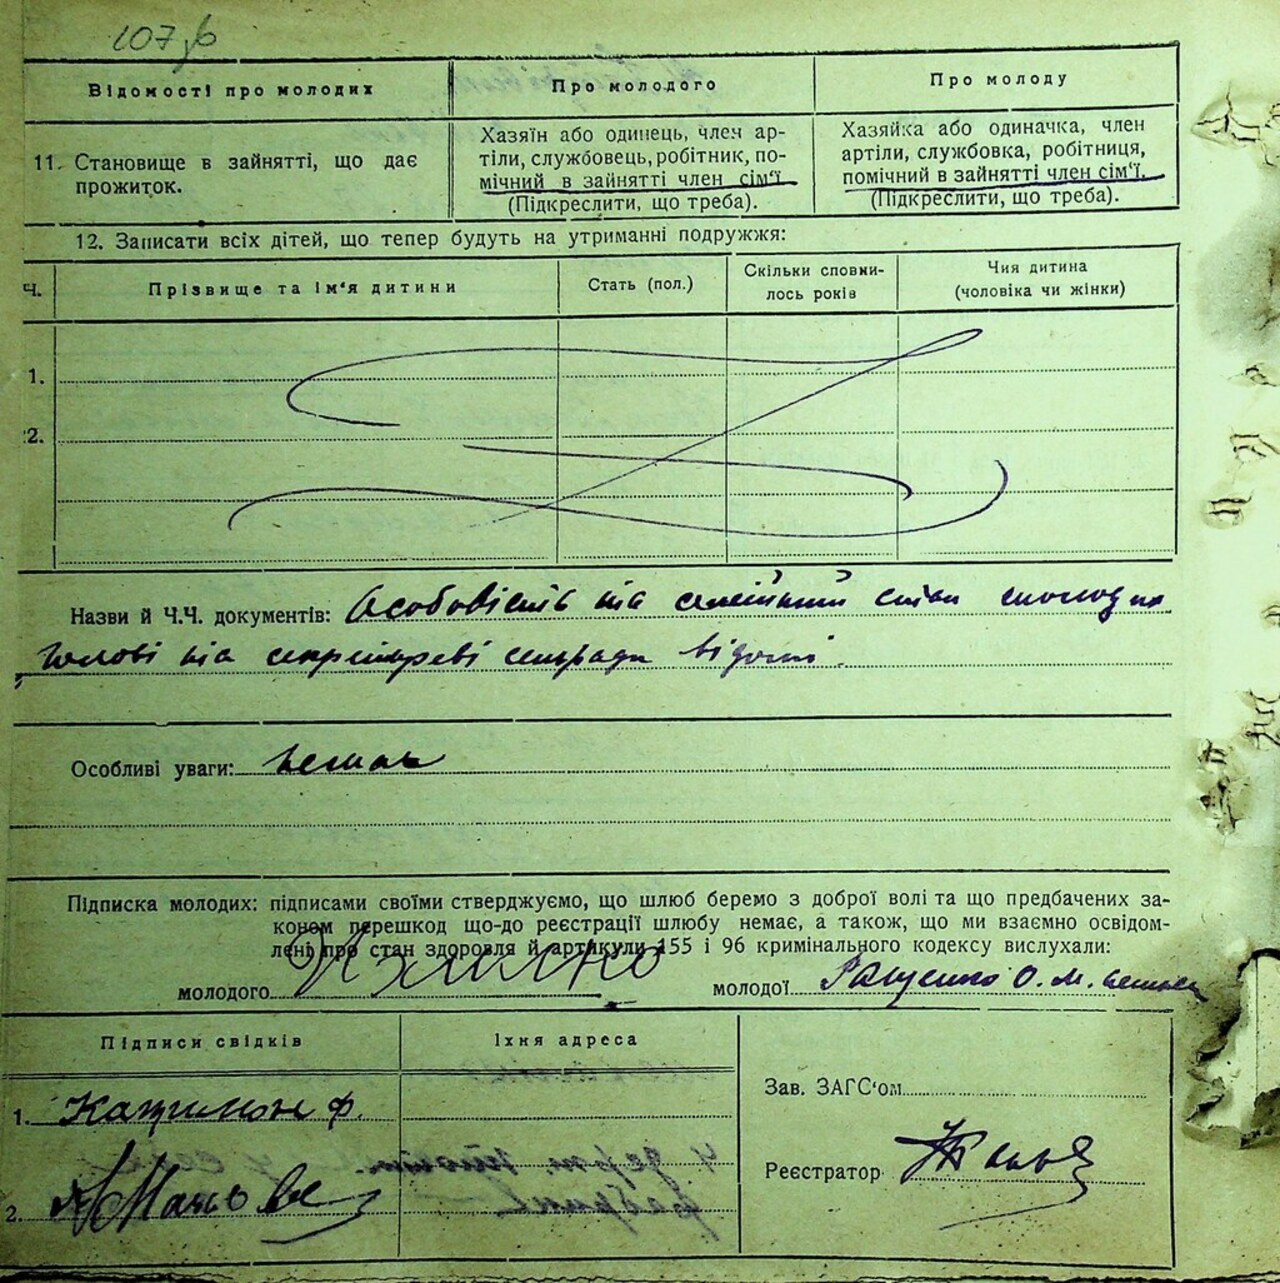 107 зб
Відомості про молодих
Про молодого
Про молоду
11. Становище в зайнятті, що дає
прожиток.
Хазяїн або одинець, член ар-
тілі, службовець, робітник, по-
мічний в зайнятті член сім'ї
(Підкреслити, що треба).
Хазяйка або одиначка, член
артіли, службовка, робітниця,
помічний в зайнятті член сім'ї.
(Підкреслити, що треба).
12. Записати всіх дітей, що тепер будуть на утриманні подружжя:
Ч.
Прізвище та ім'я дитини
Стать (пол.)
Скільки сповни-
лось років
Чия дитина
(чоловіка чи жінки)
1.
2.
Назви й Ч.Ч. документів: Особовість та семейний стан молодих
голові та секретареві сельради відомі.
Особливі уваги: немає
Підписка молодих: підписами своїми стверджуємо, що шлюб беремо з доброї волі та що предбачених за-
коном перешкод що-до реєстрації шлюбу немає, а також, що ми взаємно освідом-
лені про стан здоровля й артикули 155 і 96 кримінального кодексу вислухали:
молодого
молодої О. М.
Підписи свідків
Їхня адреса
Зав. ЗАГС'ом
1. Ф.
Реєстратор
2.